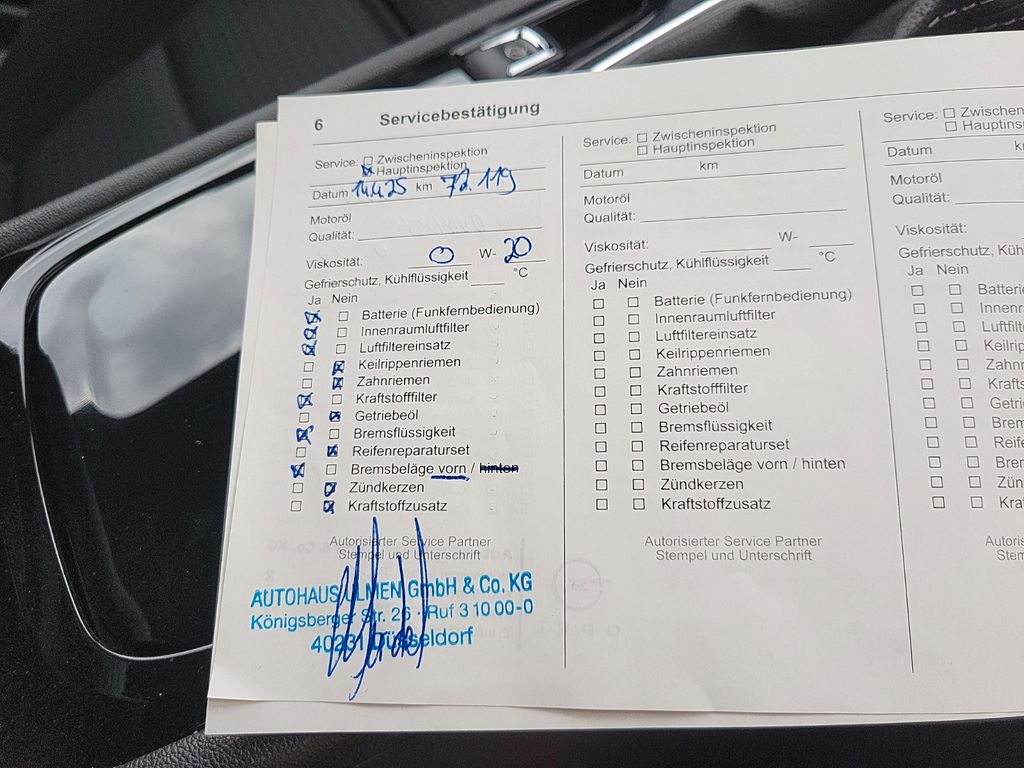 6 Servicebestätigung
Service: Zwischeninspektion
Hauptinspektion
Datum 14.4.25 km 72.119
Motoröl
Qualität:
Viskosität: 0 W- 20
Gefrierschutz, Kühlflüssigkeit °C
Ja Nein
Batterie (Funkfernbedienung)
Innenraumluftfilter
Luftfiltereinsatz
Keilrippenriemen
Zahnriemen
Kraftstofffilter
Getriebeöl
Bremsflüssigkeit
Reifenreparaturset
Bremsbeläge vorn / hinten
Zündkerzen
Kraftstoffzusatz
Autorisierter Service Partner
Stempel und Unterschrift
AUTOHAUS ULMEN GmbH & Co. KG
Königsberger Str. 26 · Ruf 3 10 00-0
40231 Düsseldorf
Service: Zwischeninspektion
Hauptinspektion
Datum km
Motoröl
Qualität:
Viskosität: W-
Gefrierschutz, Kühlflüssigkeit °C
Ja Nein
Batterie (Funkfernbedienung)
Innenraumluftfilter
Luftfiltereinsatz
Keilrippenriemen
Zahnriemen
Kraftstofffilter
Getriebeöl
Bremsflüssigkeit
Reifenreparaturset
Bremsbeläge vorn / hinten
Zündkerzen
Kraftstoffzusatz
Autorisierter Service Partner
Stempel und Unterschrift
Service: Zwischeninspektion
Hauptins
Datum
Motoröl
Qualität:
Viskosität:
Gefrierschutz, Kühlflü
Ja Nein
Batterie
Innenr
Luftfilt
Keilrip
Zahnr
Krafts
Getrie
Brem
Reife
Brem
Zün
Kra
Autoris
Ste